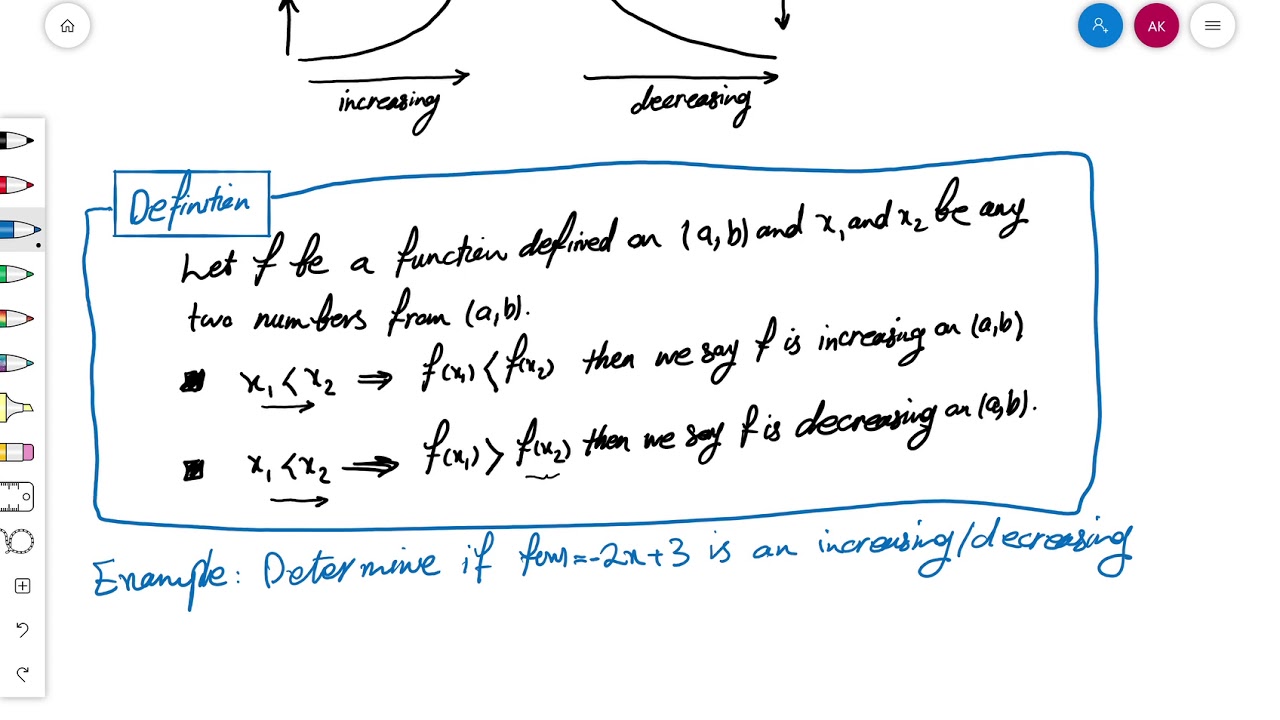 AK
increasing
decreasing
Definition
Let f be a function defined on (a,b) and x₁ and x₂ be any
two numbers from (a,b).
x₁ < x₂ ⇒ f(x₁) < f(x₂) then we say f is increasing on (a,b)
x₁ < x₂ ⇒ f(x₁) > f(x₂) then we say f is decreasing on (a,b).
Example: Determine if f(x)=-2x+3 is an increasing/decreasing